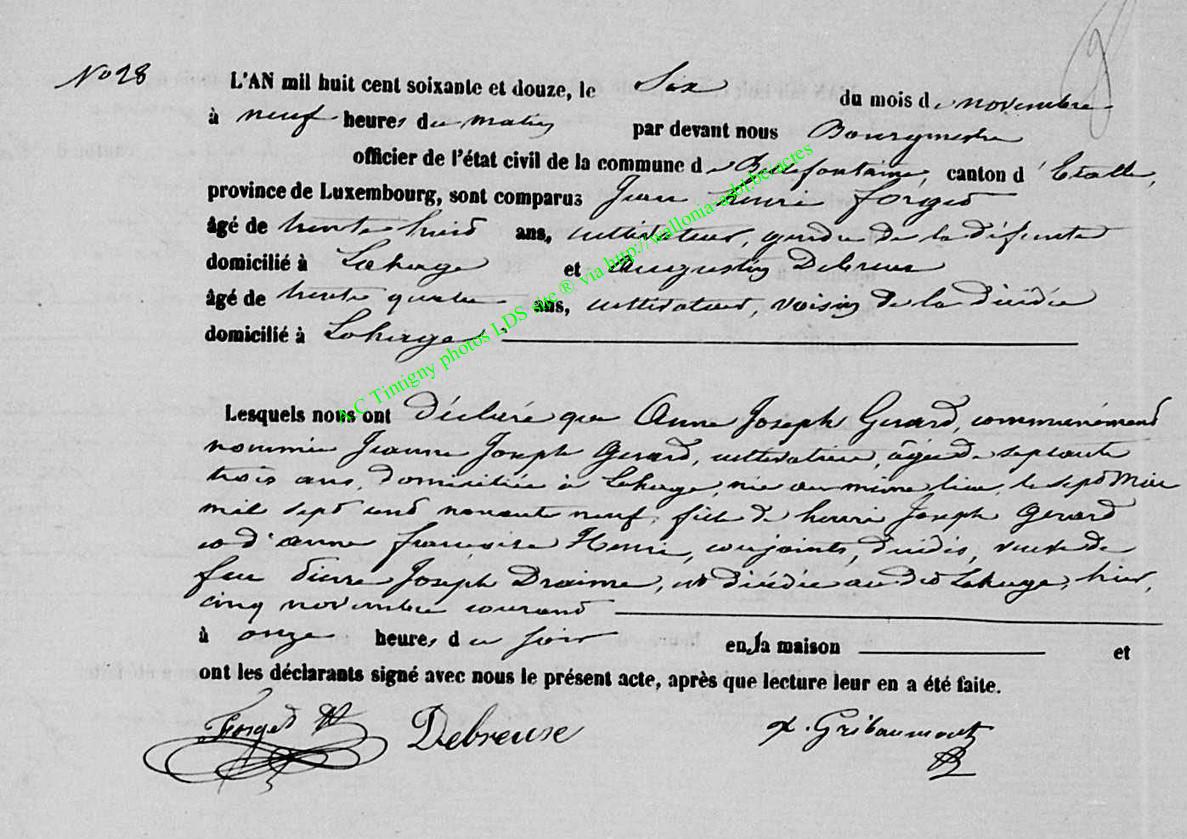 No 28
L'AN mil huit cent soixante et douze, le Six du mois de novembre
à neuf heures du matin par devant nous Bourgmestre
officier de l'état civil de la commune de Bellefontaine, canton d'Etalle,
province de Luxembourg, sont comparus Jean Henri Forget
âgé de trente huit ans, cultivateur, gendre de la défunte
domicilié à Lahage et Augustin Debreux
âgé de trente quatre ans, cultivateur, voisin de la décédée
domicilié à Lahage
Lesquels nous ont déclaré que Anne Joseph Gerard, communément
nommée Jeanne Joseph Gerard, cultivatrice, âgée de septante
trois ans, domiciliée à Lahage, née au même lieu, le sept Mai
mil sept cent nonante neuf, fille de henri Joseph Gerard
et d'anne françoise Henri, conjoints, décédés, veuve de
feu Pierre Joseph Draime, est décédée au dit Lahage, hier,
cinq novembre courant
à onze heures du soir en sa maison et
ont les déclarants signé avec nous le présent acte, après que lecture leur en a été faite.
Forget JH Debreuse x. Gribaumont
A.C Tintigny photos LDS site ® via http://wallonia-asbl.be/acres